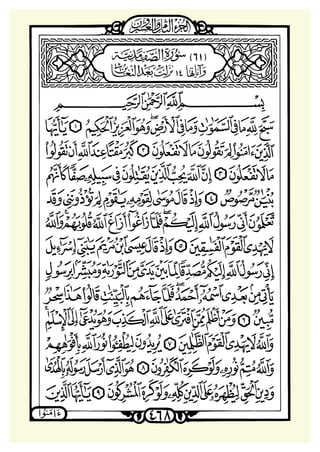 الجزء الثامن والعشرون
(٦١) سُورَةُ الصَّفِّ مَدَنِيَّة
وَآيَاتُهَا ١٤ نَزَلَتْ بَعْدَ التَّغَابُن
بِسْمِ ٱللَّهِ ٱلرَّحْمَٰنِ ٱلرَّحِيمِ
سَبَّحَ لِلَّهِ مَا فِي ٱلسَّمَٰوَٰتِ وَمَا فِي ٱلْأَرْضِ وَهُوَ ٱلْعَزِيزُ ٱلْحَكِيمُ ١ يَٰٓأَيُّهَا
ٱلَّذِينَ ءَامَنُوا۟ لِمَ تَقُولُونَ مَا لَا تَفْعَلُونَ ٢ كَبُرَ مَقْتًا عِندَ ٱللَّهِ أَن تَقُولُوا۟
مَا لَا تَفْعَلُونَ ٣ إِنَّ ٱللَّهَ يُحِبُّ ٱلَّذِينَ يُقَٰتِلُونَ فِي سَبِيلِهِۦ صَفًّا كَأَنَّهُم
بُنْيَٰنٌ مَّرْصُوصٌ ٤ وَإِذْ قَالَ مُوسَىٰ لِقَوْمِهِۦ يَٰقَوْمِ لِمَ تُؤْذُونَنِي وَقَد
تَّعْلَمُونَ أَنِّي رَسُولُ ٱللَّهِ إِلَيْكُمْ فَلَمَّا زَاغُوٓا۟ أَزَاغَ ٱللَّهُ قُلُوبَهُمْ وَٱللَّهُ
لَا يَهْدِي ٱلْقَوْمَ ٱلْفَٰسِقِينَ ٥ وَإِذْ قَالَ عِيسَى ٱبْنُ مَرْيَمَ يَٰبَنِيٓ إِسْرَٰٓءِيلَ
إِنِّي رَسُولُ ٱللَّهِ إِلَيْكُم مُّصَدِّقًا لِّمَا بَيْنَ يَدَيَّ مِنَ ٱلتَّوْرَىٰةِ وَمُبَشِّرًۢا بِرَسُولٍ
يَأْتِي مِنۢ بَعْدِي ٱسْمُهُۥٓ أَحْمَدُ فَلَمَّا جَآءَهُم بِٱلْبَيِّنَٰتِ قَالُوا۟ هَٰذَا سِحْرٌ
مُّبِينٌ ٦ وَمَنْ أَظْلَمُ مِمَّنِ ٱفْتَرَىٰ عَلَى ٱللَّهِ ٱلْكَذِبَ وَهُوَ يُدْعَىٰٓ إِلَى ٱلْإِسْلَٰمِ
وَٱللَّهُ لَا يَهْدِي ٱلْقَوْمَ ٱلظَّٰلِمِينَ ٧ يُرِيدُونَ لِيُطْفِـُٔوا۟ نُورَ ٱللَّهِ بِأَفْوَٰهِهِمْ
وَٱللَّهُ مُتِمُّ نُورِهِۦ وَلَوْ كَرِهَ ٱلْكَٰفِرُونَ ٨ هُوَ ٱلَّذِيٓ أَرْسَلَ رَسُولَهُۥ بِٱلْهُدَىٰ
وَدِينِ ٱلْحَقِّ لِيُظْهِرَهُۥ عَلَى ٱلدِّينِ كُلِّهِۦ وَلَوْ كَرِهَ ٱلْمُشْرِكُونَ ٩ يَٰٓأَيُّهَا ٱلَّذِينَ
٤٦٨
ءَامَنُوا۟